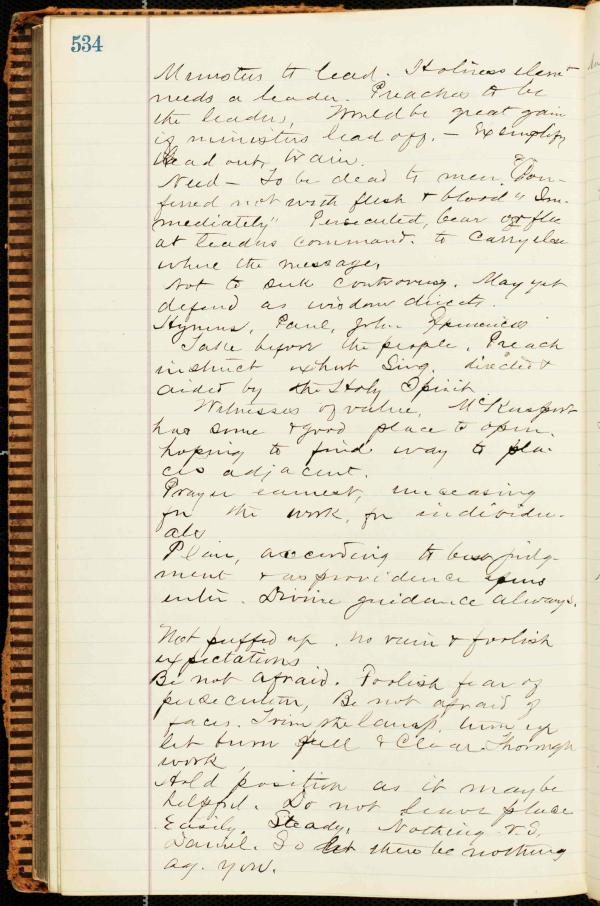 534
Ministers to lead. Holiness
needs a leader. Preacher to be
the leaders, Would be great gain
if ministers lead off. — Exemplify
lead out, train.
Need — To be dead to men. Con-
ferred not with flesh & blood "Im-
mediately" Persecuted, bear or flee
at leaders command. to carry else
where the message,
Not to seek controversy. May yet
defend as wisdom directs.
Hymns, Paul, John
Take before the people, Preach
instruct exhort Sing, directed &
aided by the Holy Spirit
Witnesses of value, McKeesport
has some & good place to open.
hoping to find way to pla-
ces adjacent.
Prayer earnest, unceasing
for the work, for individu-
als
Plan, according to best judg-
ment & as providence opens
enter. Divine guidance always.
Not puffed up. no vain & foolish
expectations
Be not afraid. Foolish fear of
persecution, Be not afraid of
faces. Trim the lamp, turn up
let burn full & Clear. Thorough
work,
Hold position as it maybe
helpful. Do not leave place
Easily. Steady. Nothing
Daniel. So let there be nothing
ag. you.